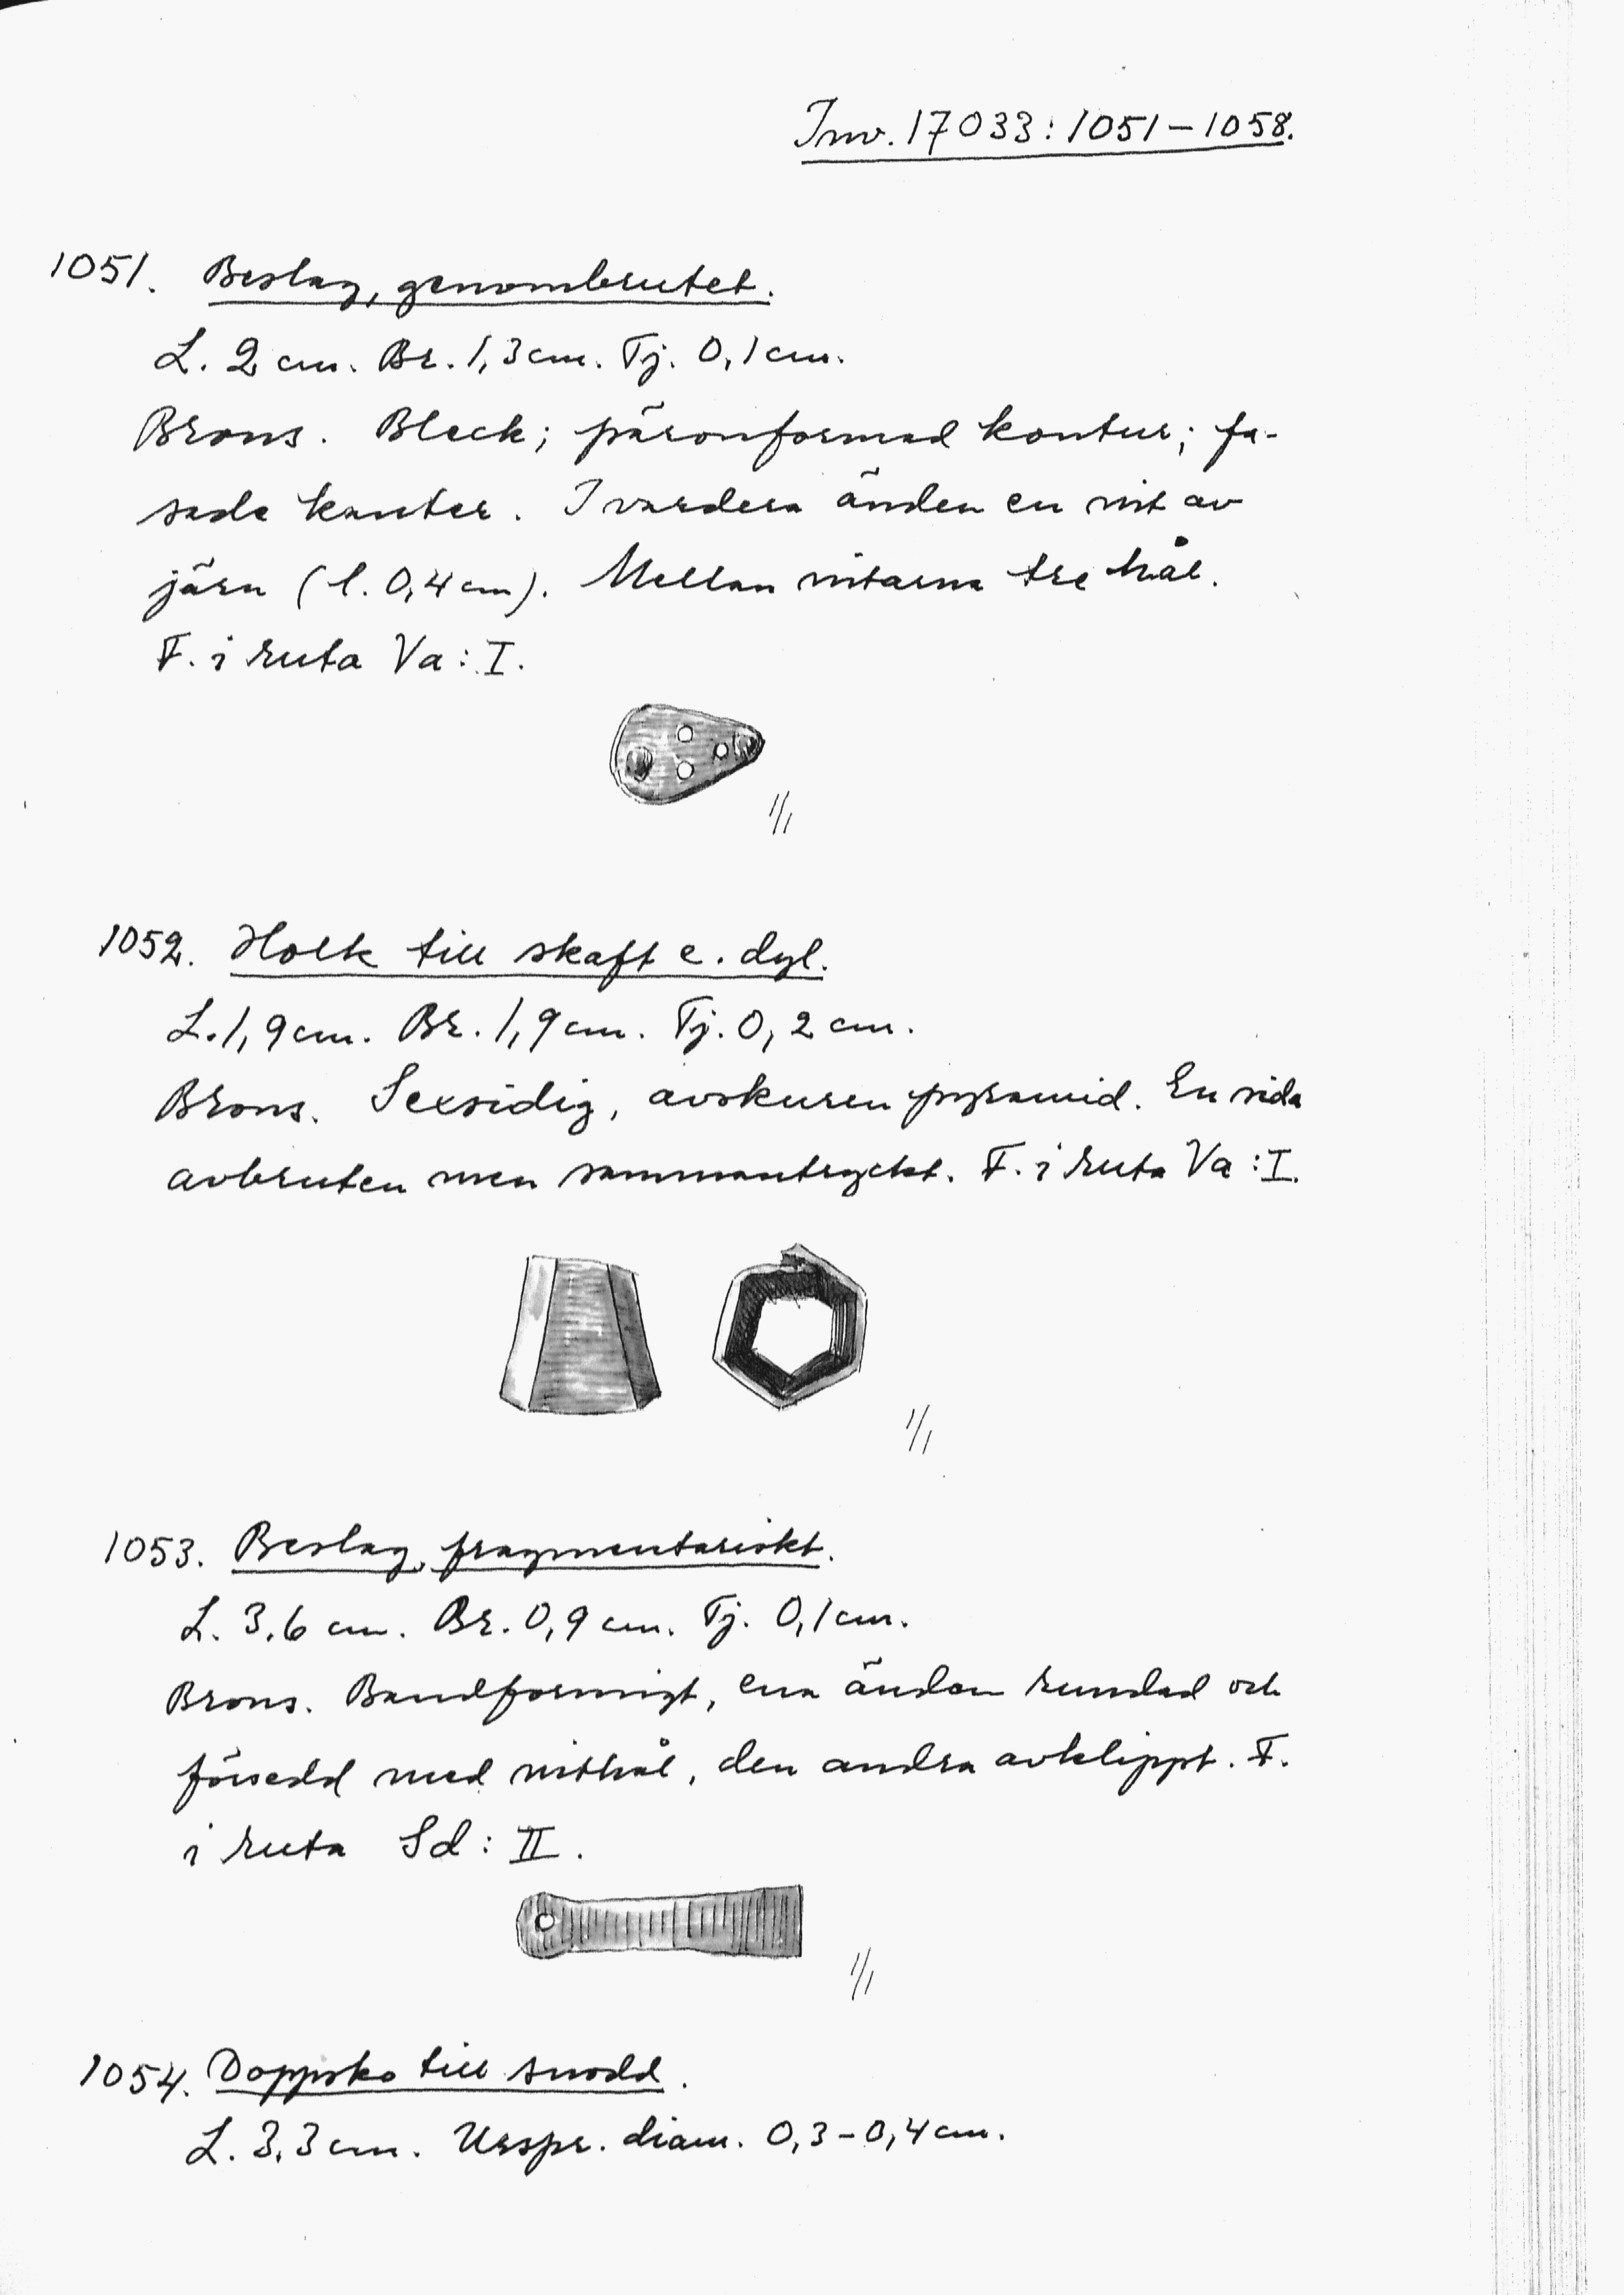 Inv. 17033: 1051–1058.
1051. Beslag, genombrutet.
L. 2 cm. Br. 1,3 cm. Tj. 0,1 cm.
Brons. Bleck; päronformad kontur; fa-
sade kanter. I vardera änden en nit av
järn (l. 0,4 cm). Mellan nitarna tre hål.
F. i ruta Va: I.
1/1
1052. Holk till skaft e. dyl.
L. 1,9 cm. Br. 1,9 cm. Tj. 0,2 cm.
Brons. Sexsidig, avskuren pyramid. En sida
avbruten men sammantryckt. F. i ruta Va: I.
1/1
1053. Beslag, fragmentariskt.
L. 3,6 cm. Br. 0,9 cm. Tj. 0,1 cm.
Brons. Bandformigt, ena ändan rundad och
försedd med nithål, den andra avklippt. F.
i ruta Sd: II.
1/1
1054. Doppsko till snodd.
L. 3,3 cm. Urspr. diam. 0,3–0,4 cm.